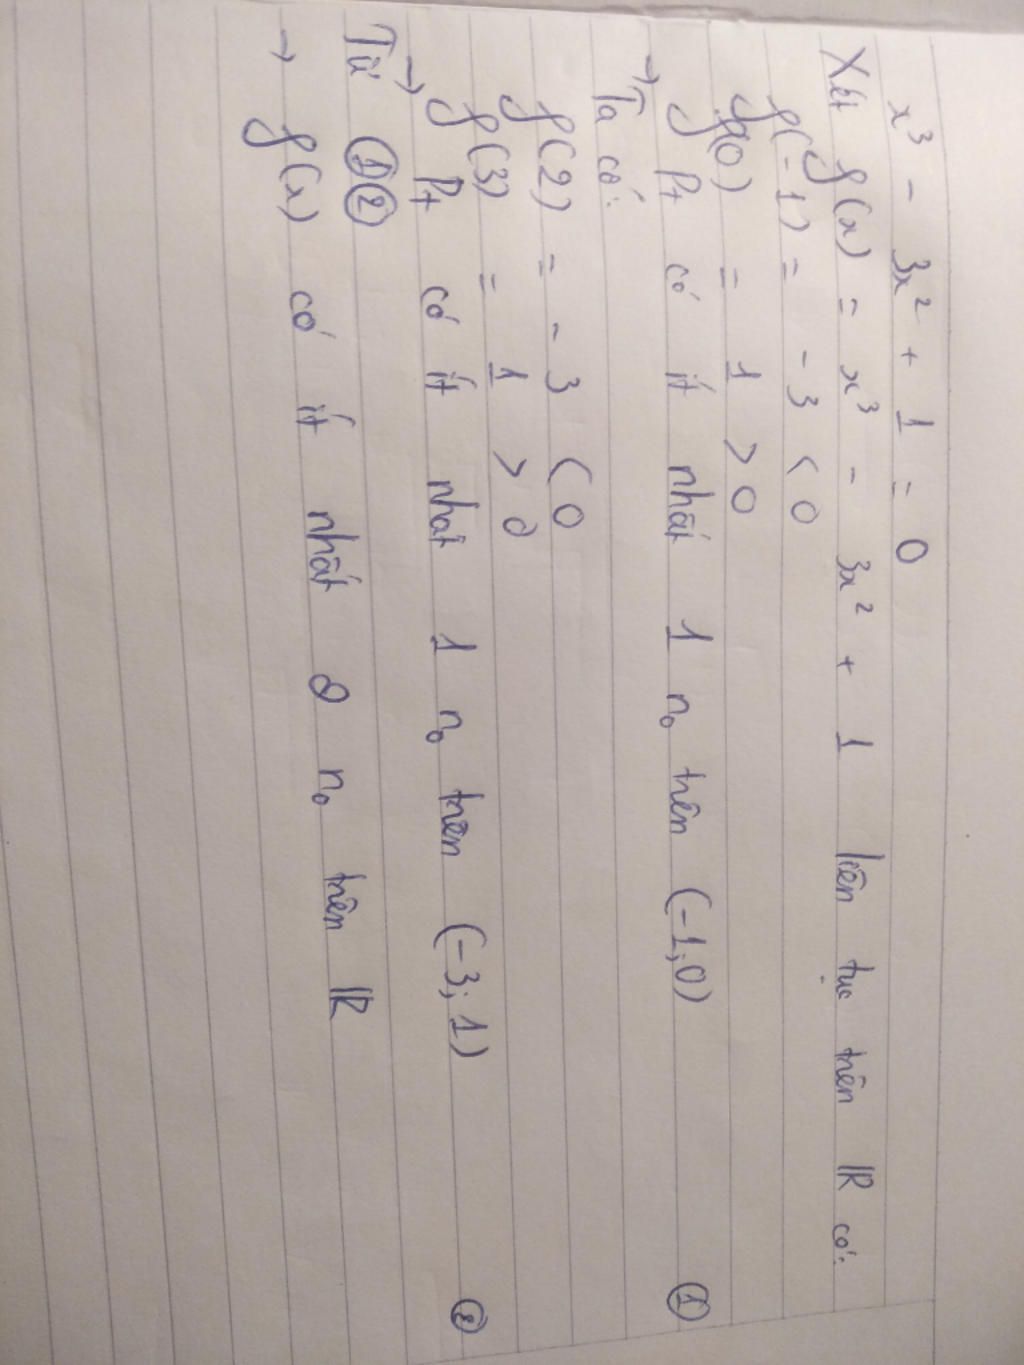 x³ - 3x² + 1 = 0
Xét f(x) = x³ - 3x² + 1 liên tục trên ℝ có:
f(-1) = -3 < 0
f(0) = 1 > 0
→ Pt có ít nhất 1 n₀ trên (-1;0) ①
Ta có:
f(2) = -3 < 0
f(3) = 1 > 0
→ Pt có ít nhất 1 n₀ trên (-3; 1) ②
Từ ① ②
→ f(x) có ít nhất 2 n₀ trên ℝ